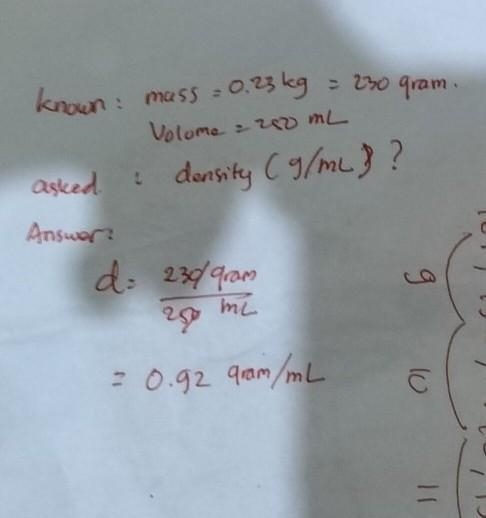 known : mass = 0.23 kg = 230 gram.
Volume = 250 mL
asked : density (g/mL) ?
Answer:
d = 230 gram
250 mL
= 0.92 gram/mL